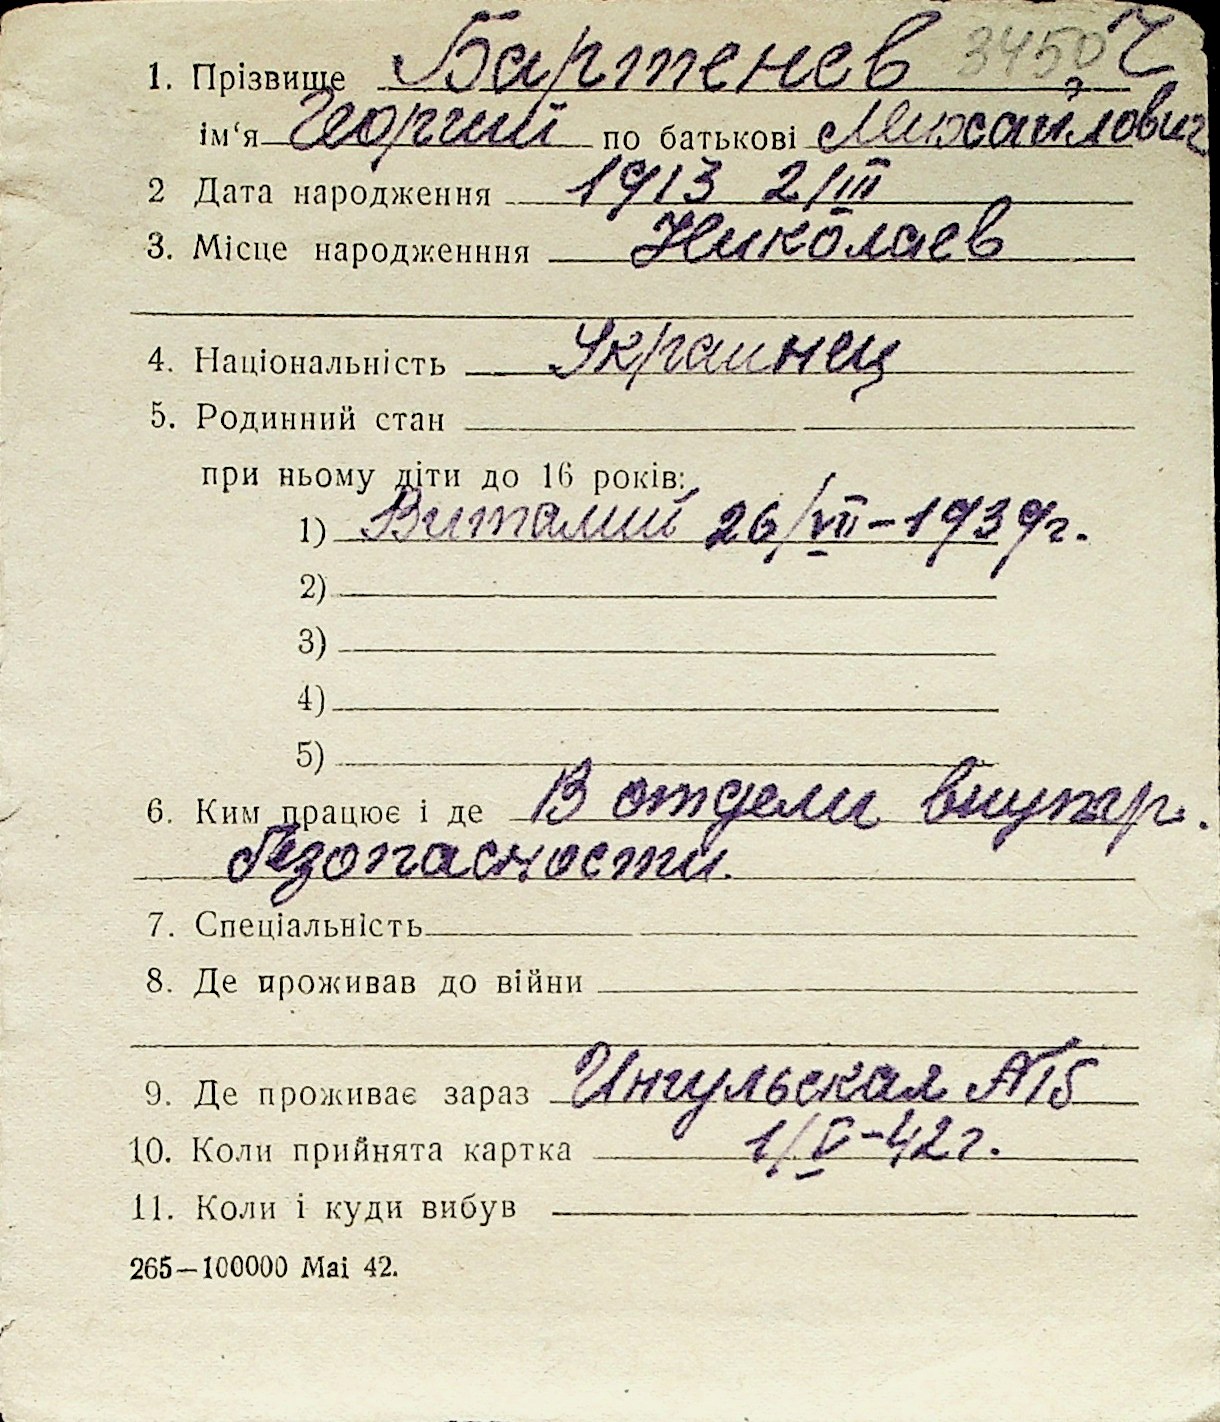 1. Прізвище Бартенев 3450 Ч
ім‘я Георгий по батькові Михайлович
2 Дата народження 1913 2/III
3. Місце народженння Николаев
4. Національність Украинец
5. Родинний стан
при ньому діти до 16 років:
1) Виталий 26/VII-1939г.
2)
3)
4)
5)
6. Ким працює і де В отдели внутр.
безопасности.
7. Спеціальність
8. Де проживав до війни
9. Де проживає зараз Ингульская №15
10. Коли прийнята картка 1/V-42г.
11. Коли і куди вибув
265—100000 Mai 42.